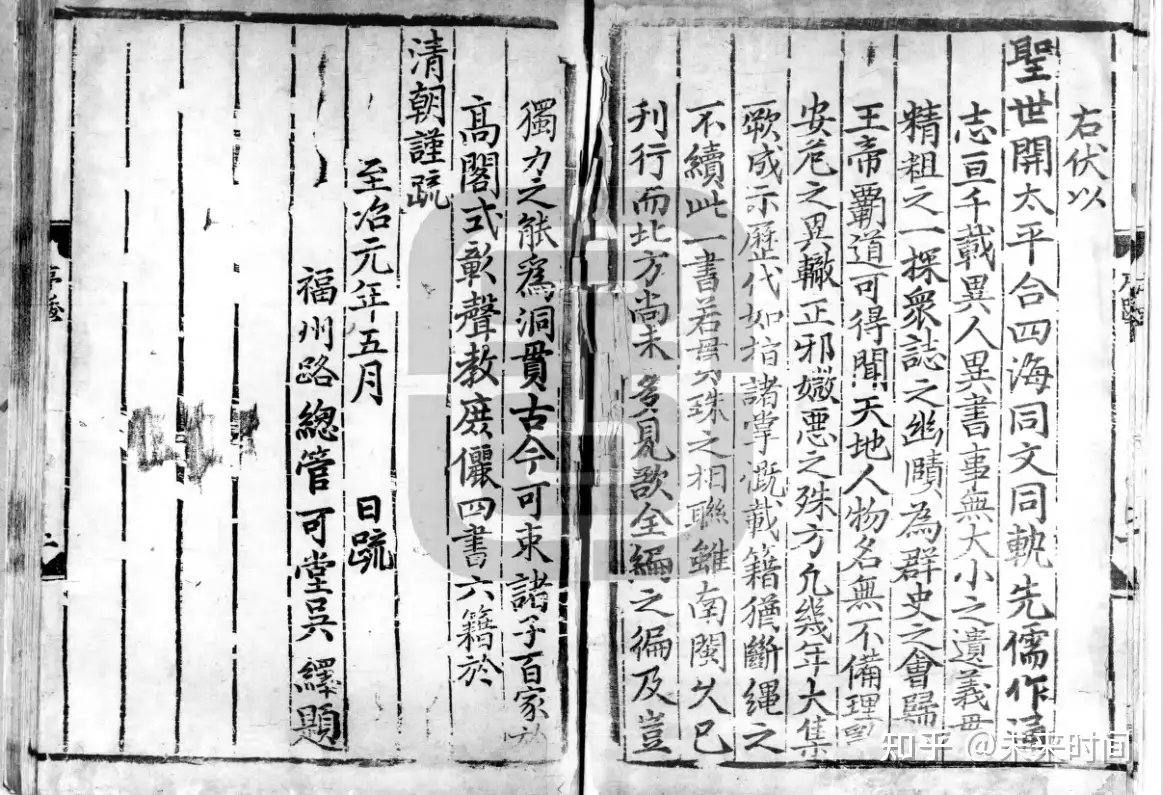 右伏以
聖世開太平合四海同文同軌先儒作通
志亘千載異人異書事無大小之遺義毋
精粗之一探衆誌之幽賾為群史之會歸
王帝霸道可得聞天地人物名無不備理
安危之異轍正邪媺惡之殊方凢幾年大集
厥成示歷代如指諸掌慨載籍猶斷繩之
不續此一書若毋珠之相聯雖南閩久已
刊行而北方尚未多見欲全編之徧及豈
獨力之能爲洞貫古今可束諸子百家於
高閣式彰聲教庶儷四書六籍於
清朝謹疏
至治元年五月 日疏
福州路總管可堂吳繹題
知乎 @未来时间